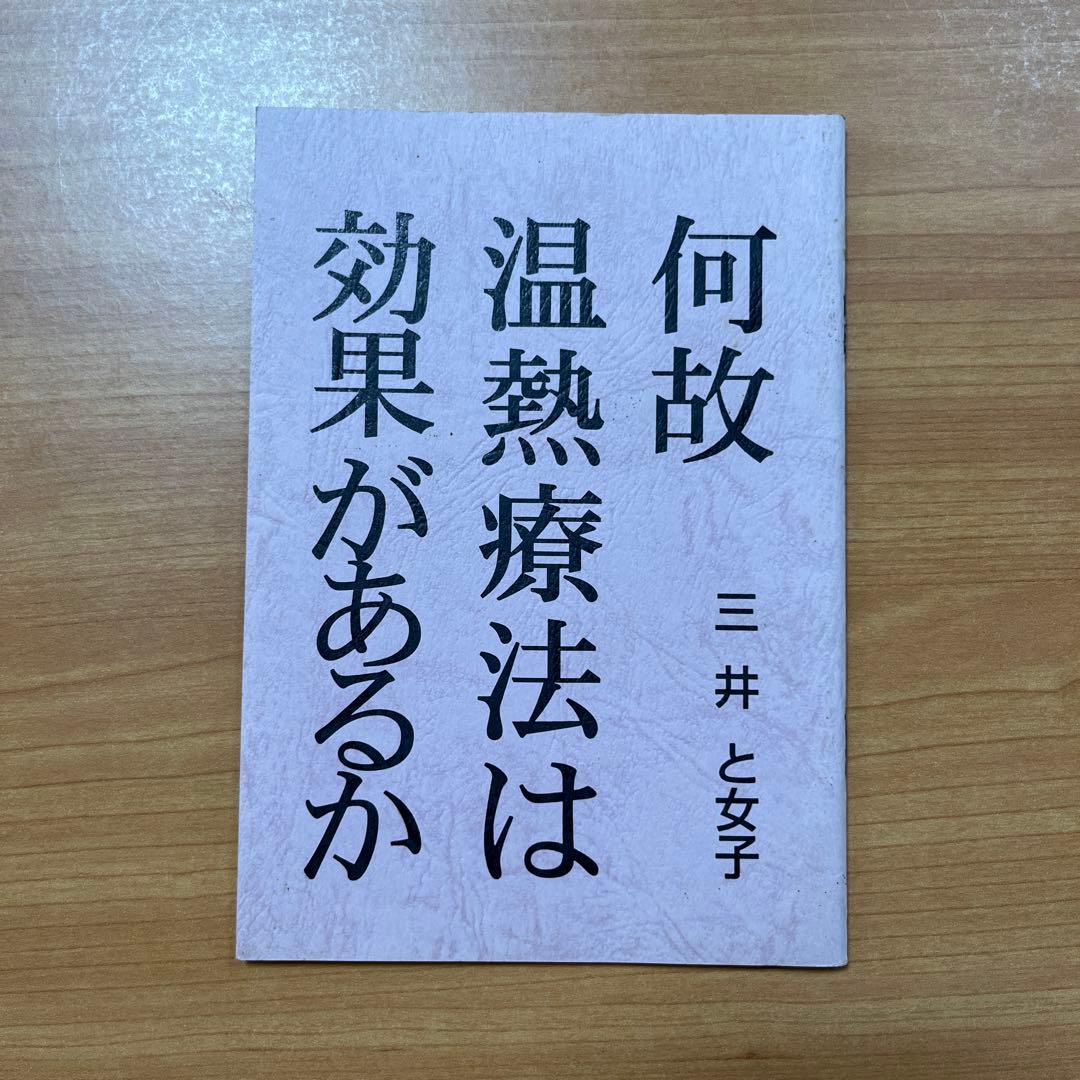 何故
温熱療法は
効果があるか
三井と女子